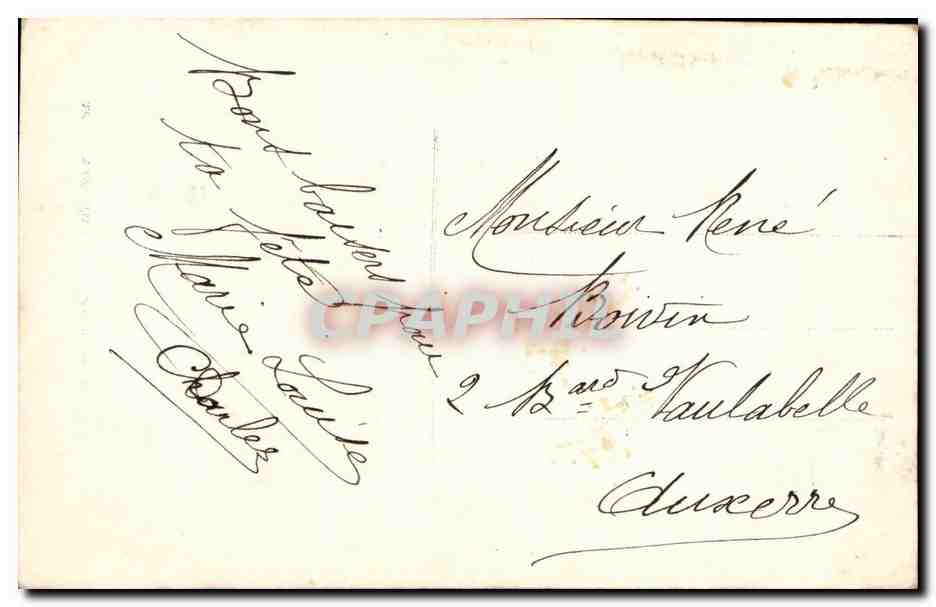 Bons baisers pour
ta fête
Marie Louise
Charles
Monsieur René
Boivin
2 Bard Vaulabelle
Auxerre
CPAPHIL